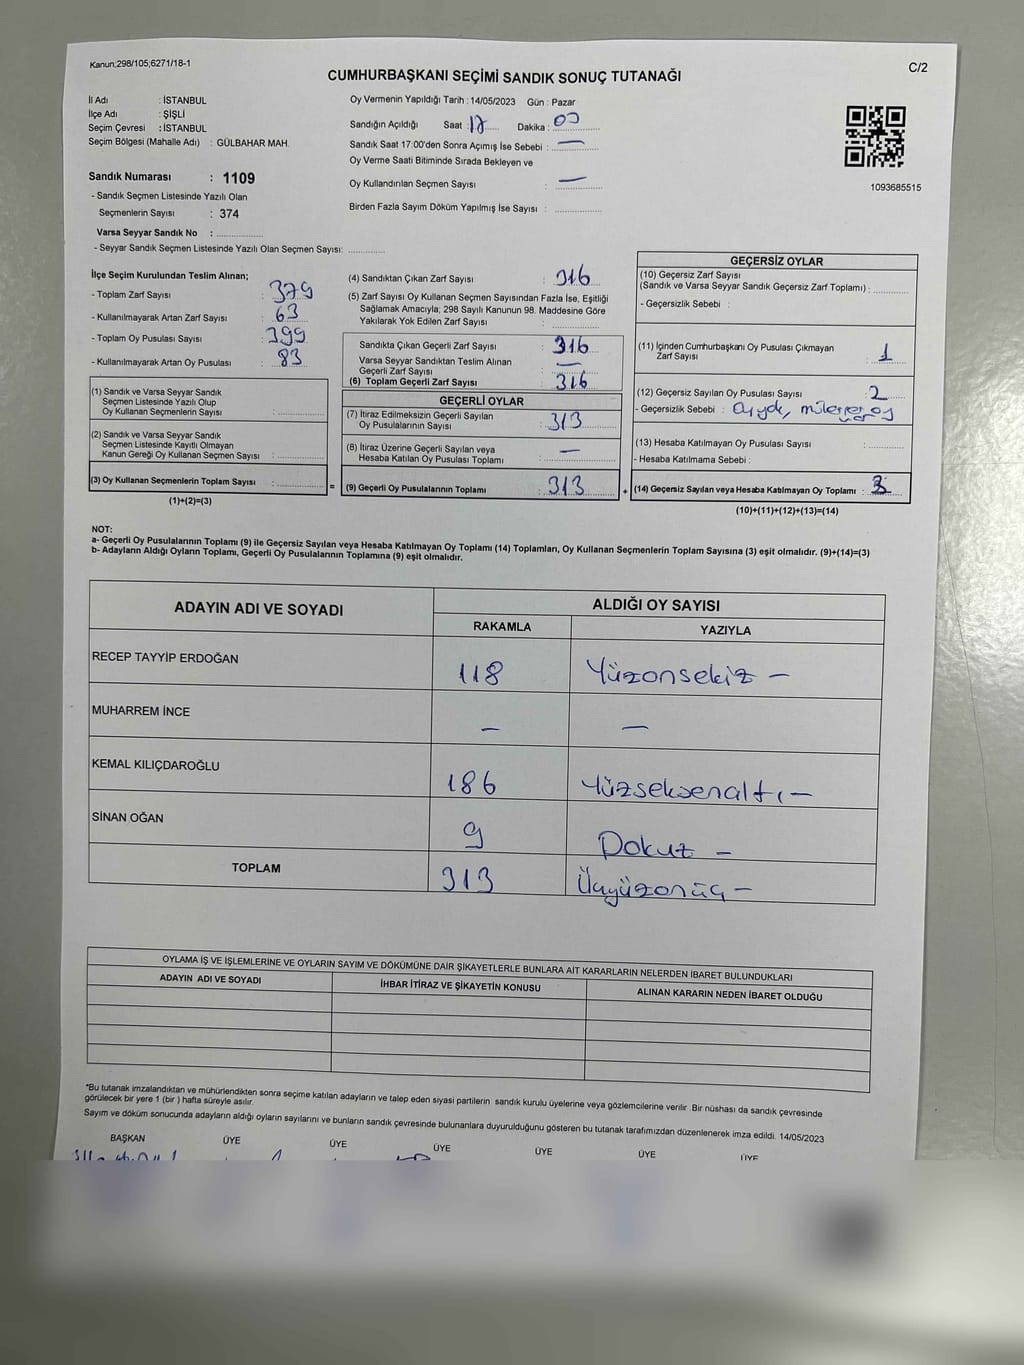 Kanun;298/105;6271/18-1
C/2
CUMHURBAŞKANI SEÇİMİ SANDIK SONUÇ TUTANAĞI
İl Adı : İSTANBUL
İlçe Adı : ŞİŞLİ
Seçim Çevresi : İSTANBUL
Seçim Bölgesi (Mahalle Adı) : GÜLBAHAR MAH.
Sandık Numarası : 1109
- Sandık Seçmen Listesinde Yazılı Olan
Seçmenlerin Sayısı : 374
Varsa Seyyar Sandık No : ..............
- Seyyar Sandık Seçmen Listesinde Yazılı Olan Seçmen Sayısı: ............
Oy Vermenin Yapıldığı Tarih : 14/05/2023 Gün : Pazar
Sandığın Açıldığı Saat : 17 Dakika : 00
Sandık Saat 17:00'den Sonra Açımış İse Sebebi : —
Oy Verme Saati Bitiminde Sırada Bekleyen ve
Oy Kullandırılan Seçmen Sayısı : —
Birden Fazla Sayım Döküm Yapılmış İse Sayısı : ..............
1093685515
İlçe Seçim Kurulundan Teslim Alınan;
- Toplam Zarf Sayısı : 379
- Kullanılmayarak Artan Zarf Sayısı : 63
- Toplam Oy Pusulası Sayısı : 399
- Kullanılmayarak Artan Oy Pusulası : 83
(1) Sandık ve Varsa Seyyar Sandık
Seçmen Listesinde Yazılı Olup
Oy Kullanan Seçmenlerin Sayısı : ..............
(2) Sandık ve Varsa Seyyar Sandık
Seçmen Listesinde Kayıtlı Olmayan
Kanun Gereği Oy Kullanan Seçmen Sayısı : ..............
(3) Oy Kullanan Seçmenlerin Toplam Sayısı : .............. =
(1)+(2)=(3)
(4) Sandıktan Çıkan Zarf Sayısı : 316
(5) Zarf Sayısı Oy Kullanan Seçmen Sayısından Fazla İse, Eşitliği
Sağlamak Amacıyla; 298 Sayılı Kanunun 98. Maddesine Göre
Yakılarak Yok Edilen Zarf Sayısı : ..............
Sandıkta Çıkan Geçerli Zarf Sayısı : 316
Varsa Seyyar Sandıktan Teslim Alınan
Geçerli Zarf Sayısı : —
(6) Toplam Geçerli Zarf Sayısı : 316
GEÇERLİ OYLAR
(7) İtiraz Edilmeksizin Geçerli Sayılan
Oy Pusulalarının Sayısı : 313
(8) İtiraz Üzerine Geçerli Sayılan veya
Hesaba Katılan Oy Pusulası Toplamı : —
(9) Geçerli Oy Pusulalarının Toplamı : 313 +
GEÇERSİZ OYLAR
(10) Geçersiz Zarf Sayısı
(Sandık ve Varsa Seyyar Sandık Geçersiz Zarf Toplamı) : ..............
- Geçersizlik Sebebi :
(11) İçinden Cumhurbaşkanı Oy Pusulası Çıkmayan
Zarf Sayısı : 1
(12) Geçersiz Sayılan Oy Pusulası Sayısı : 2
- Geçersizlik Sebebi :
(13) Hesaba Katılmayan Oy Pusulası Sayısı : ..............
- Hesaba Katılmama Sebebi :
(14) Geçersiz Sayılan veya Hesaba Katılmayan Oy Toplamı : 3
(10)+(11)+(12)+(13)=(14)
NOT:
a- Geçerli Oy Pusulalarının Toplamı (9) ile Geçersiz Sayılan veya Hesaba Katılmayan Oy Toplamı (14) Toplamları, Oy Kullanan Seçmenlerin Toplam Sayısına (3) eşit olmalıdır. (9)+(14)=(3)
b- Adayların Aldığı Oyların Toplamı, Geçerli Oy Pusulalarının Toplamına (9) eşit olmalıdır.
ADAYIN ADI VE SOYADI ALDIĞI OY SAYISI
RAKAMLA YAZIYLA
RECEP TAYYİP ERDOĞAN 118 Yüzonsekiz —
MUHARREM İNCE — —
KEMAL KILIÇDAROĞLU 186 Yüzseksenaltı —
SİNAN OĞAN 9 Dokuz —
TOPLAM 313 Üçyüzonüç —
OYLAMA İŞ VE İŞLEMLERİNE VE OYLARIN SAYIM VE DÖKÜMÜNE DAİR ŞİKAYETLERLE BUNLARA AİT KARARLARIN NELERDEN İBARET BULUNDUKLARI
ADAYIN ADI VE SOYADI İHBAR İTİRAZ VE ŞİKAYETİN KONUSU ALINAN KARARIN NEDEN İBARET OLDUĞU
*Bu tutanak imzalandıktan ve mühürlendikten sonra seçime katılan adayların ve talep eden siyasi partilerin sandık kurulu üyelerine veya gözlemcilerine verilir .Bir nüshası da sandık çevresinde
görülecek bir yere 1 (bir ) hafta süreyle asılır.
Sayım ve döküm sonucunda adayların aldığı oyların sayılarını ve bunların sandık çevresinde bulunanlara duyurulduğunu gösteren bu tutanak tarafımızdan düzenlenerek imza edildi. 14/05/2023
BAŞKAN ÜYE ÜYE ÜYE ÜYE ÜYE ÜYE